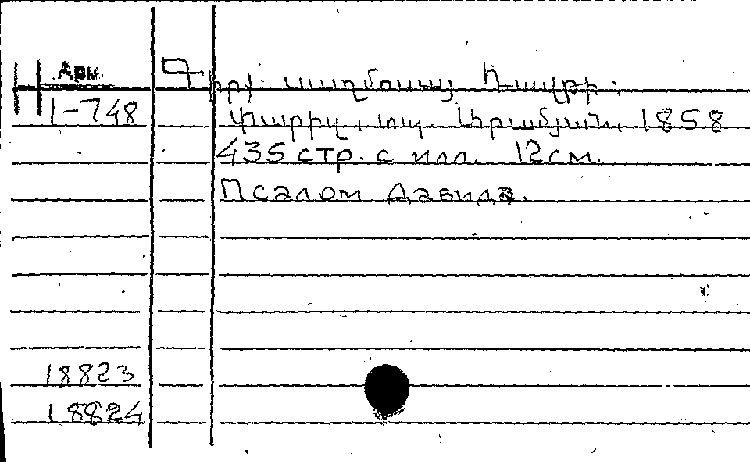 Арм.
Н
1-748
Գիրք սաղմոսաց Դաւթի:
Փարիզ, տպ. Արամեան, 1858
435 стр. с илл. 12 см.
Псалом Давида.
18823
18824